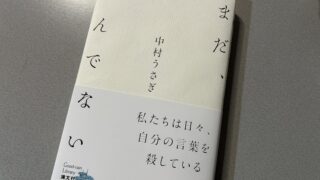 まだ、
んでない
中村うさぎ
私たちは日々、
自分の言葉を
殺している
Library